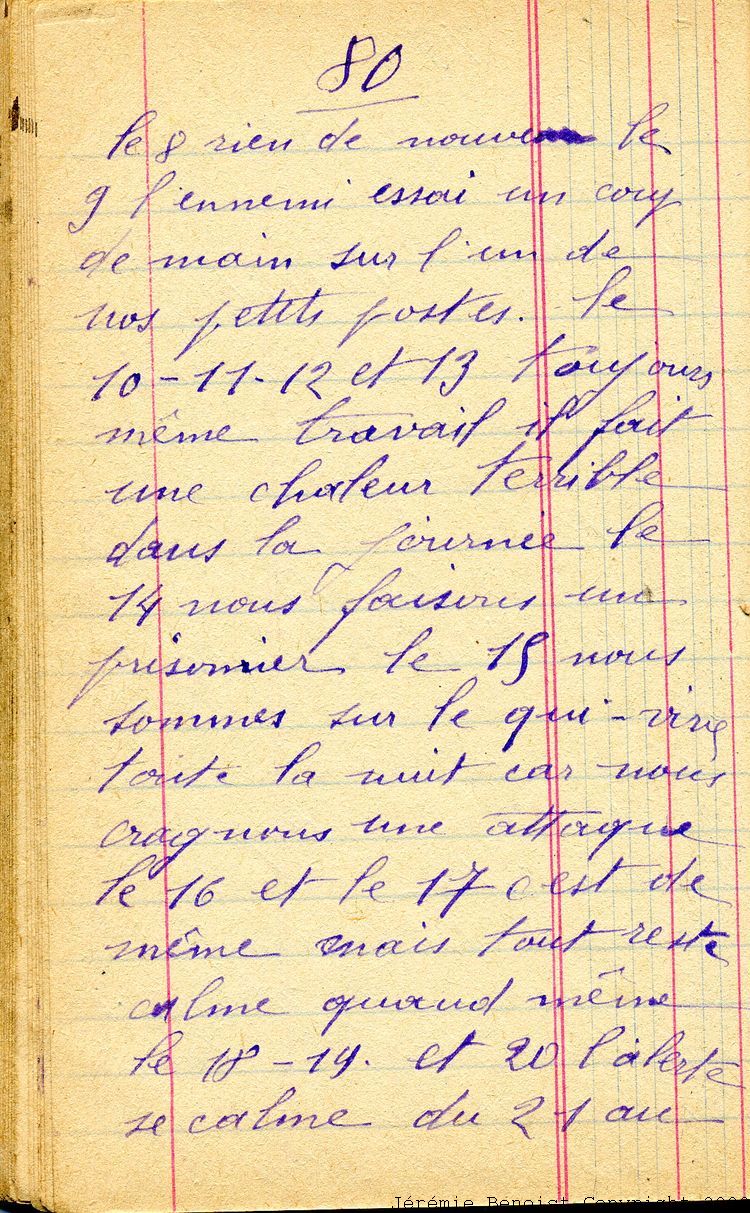 80
le 8 rien de nouveau le
9 l'ennemi essai un coup
de main sur l'un de
nos petits postes. le
10-11-12 et 13 toujours
même travail il fait
une chaleur terrible
dans la journée le
14 nous faisons un
prisonnier le 15 nous
sommes sur le qui-vive
toute la nuit car nous
cragnons une attaque
le 16 et le 17 c'est de
même mais tout reste
calme quand même
le 18-19. et 20 l'alerte
se calme du 21 au
Jérémie Benoist Copyright